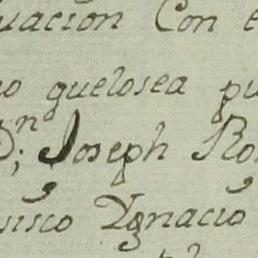 uacion Con e
o quelosea pu
Dⁿ; Joseph Ro
sisco Ygnacio